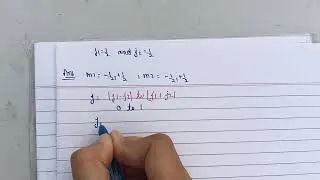 j1=½ and j2=½
Ans m1 = -½,+½ ; m2 = -½,+½
j = |j1-j2| to |j1+j2|
0 to 1
j